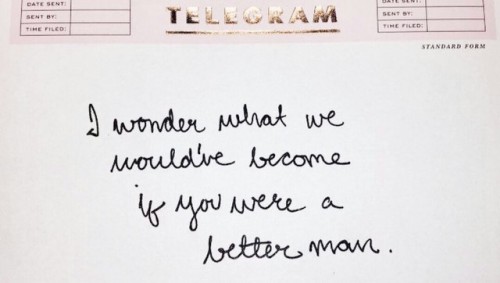 DATE SENT:
SENT BY:
TIME FILED:
TELEGRAM
DATE SENT:
SENT BY:
TIME FILED:
STANDARD FORM
I wonder what we
would've become
if you were a
better man.